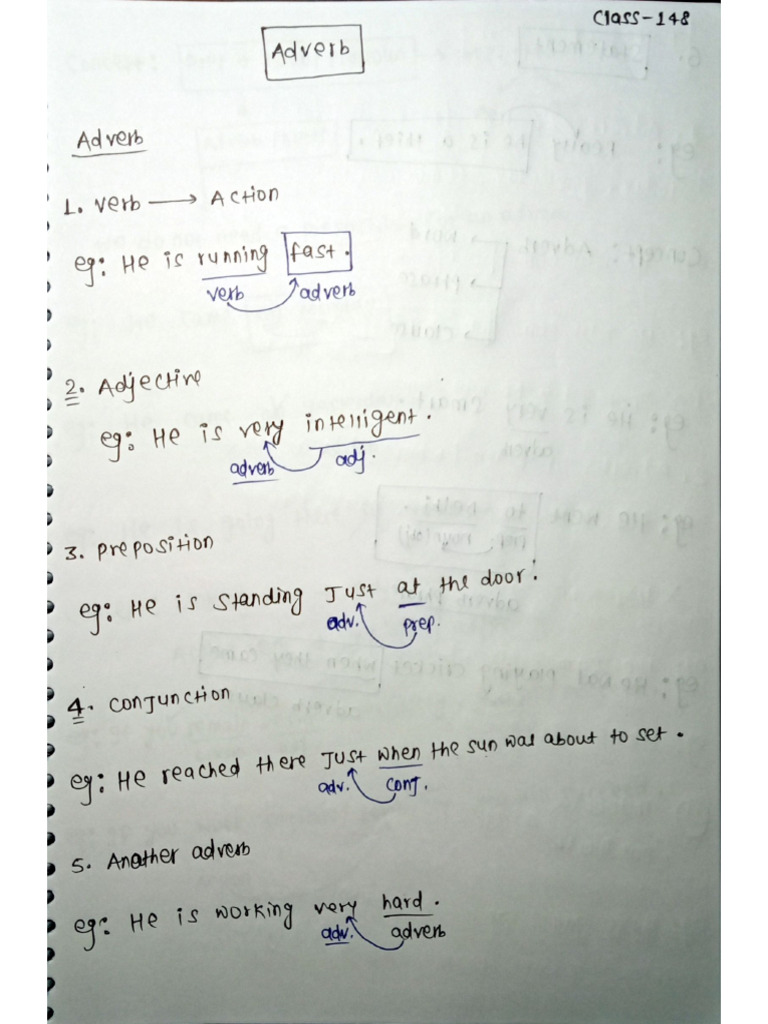 Class-148
Adverb
Adverb
1. verb → Action
eg: He is running fast.
verb adverb
2. Adjective
eg: He is very intelligent.
adverb adj.
3. Preposition
eg: He is standing Just at the door.
adv. prep.
4. conjunction
eg: He reached there Just when the sun was about to set.
adv. conj.
5. Another adverb
eg: He is working very hard.
adv. adverb